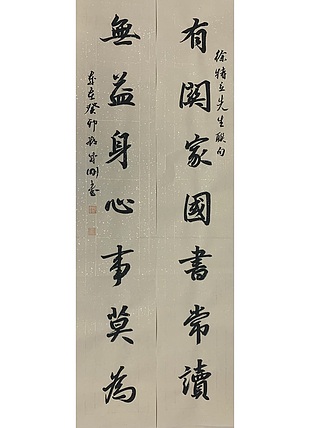 徐特立先生聯句
有關家國書常讀
無益身心事莫為
歲在癸卯書